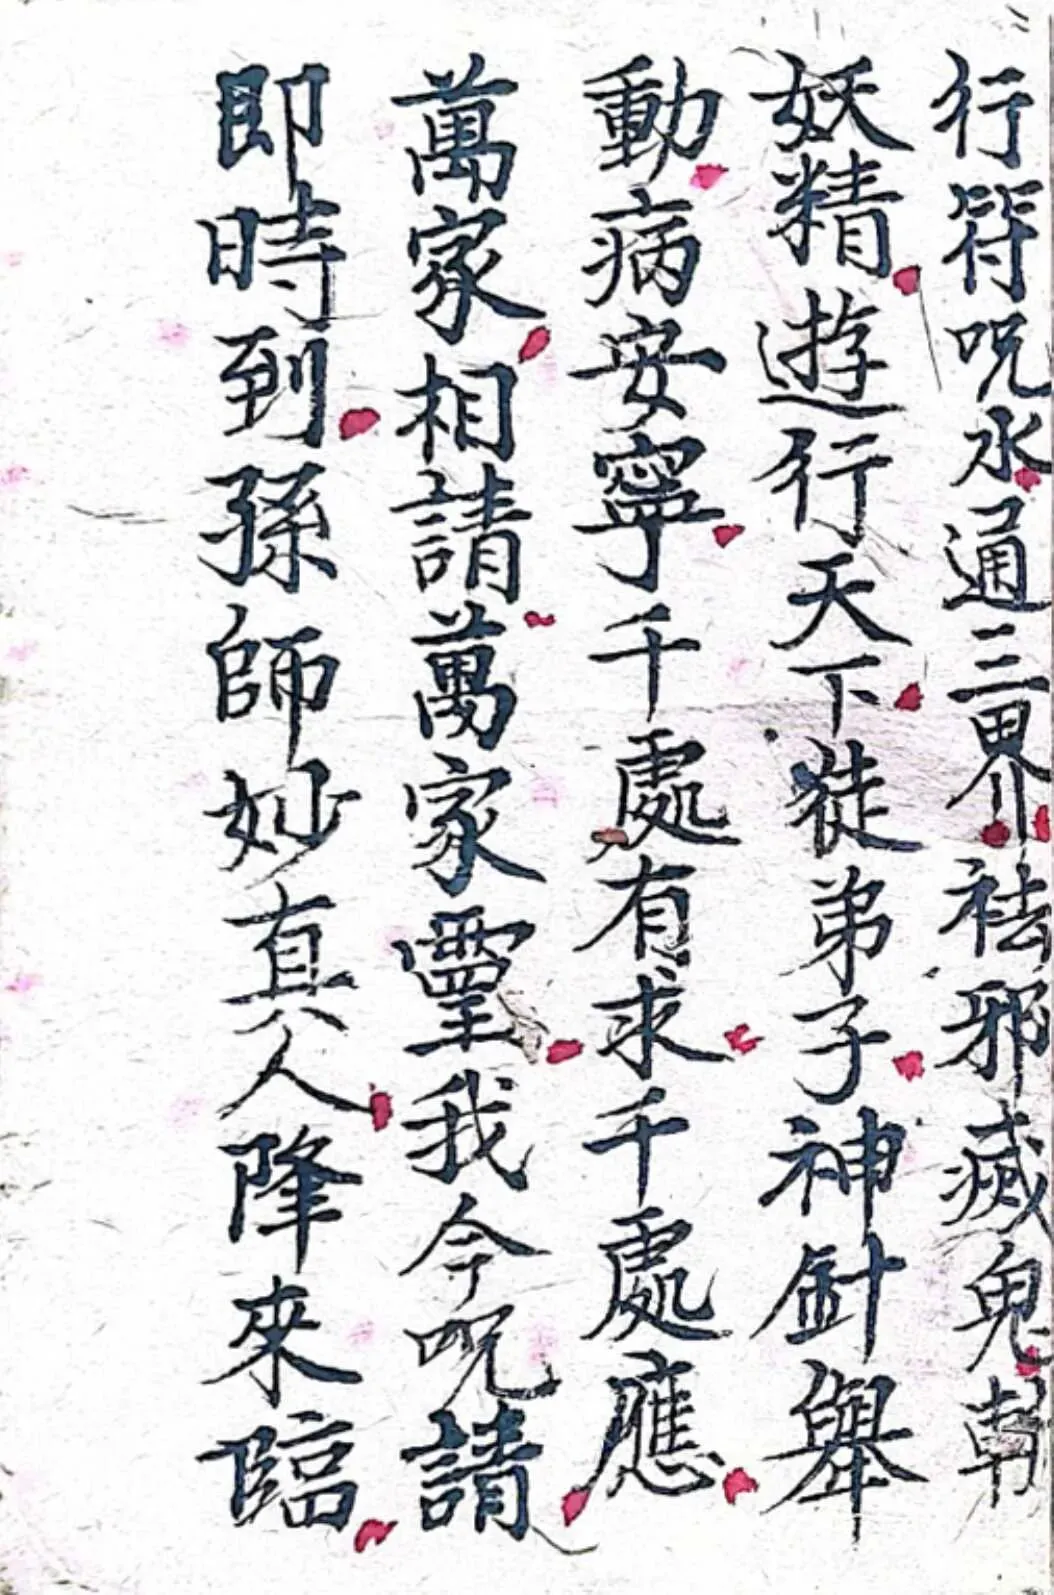 行符咒水通三界祛邪滅鬼斬
妖精遊行天下徒弟子神針舉
動病安寧千處有求千處應
萬家相請萬家靈我今咒請
即時到孫師妙真人降來臨